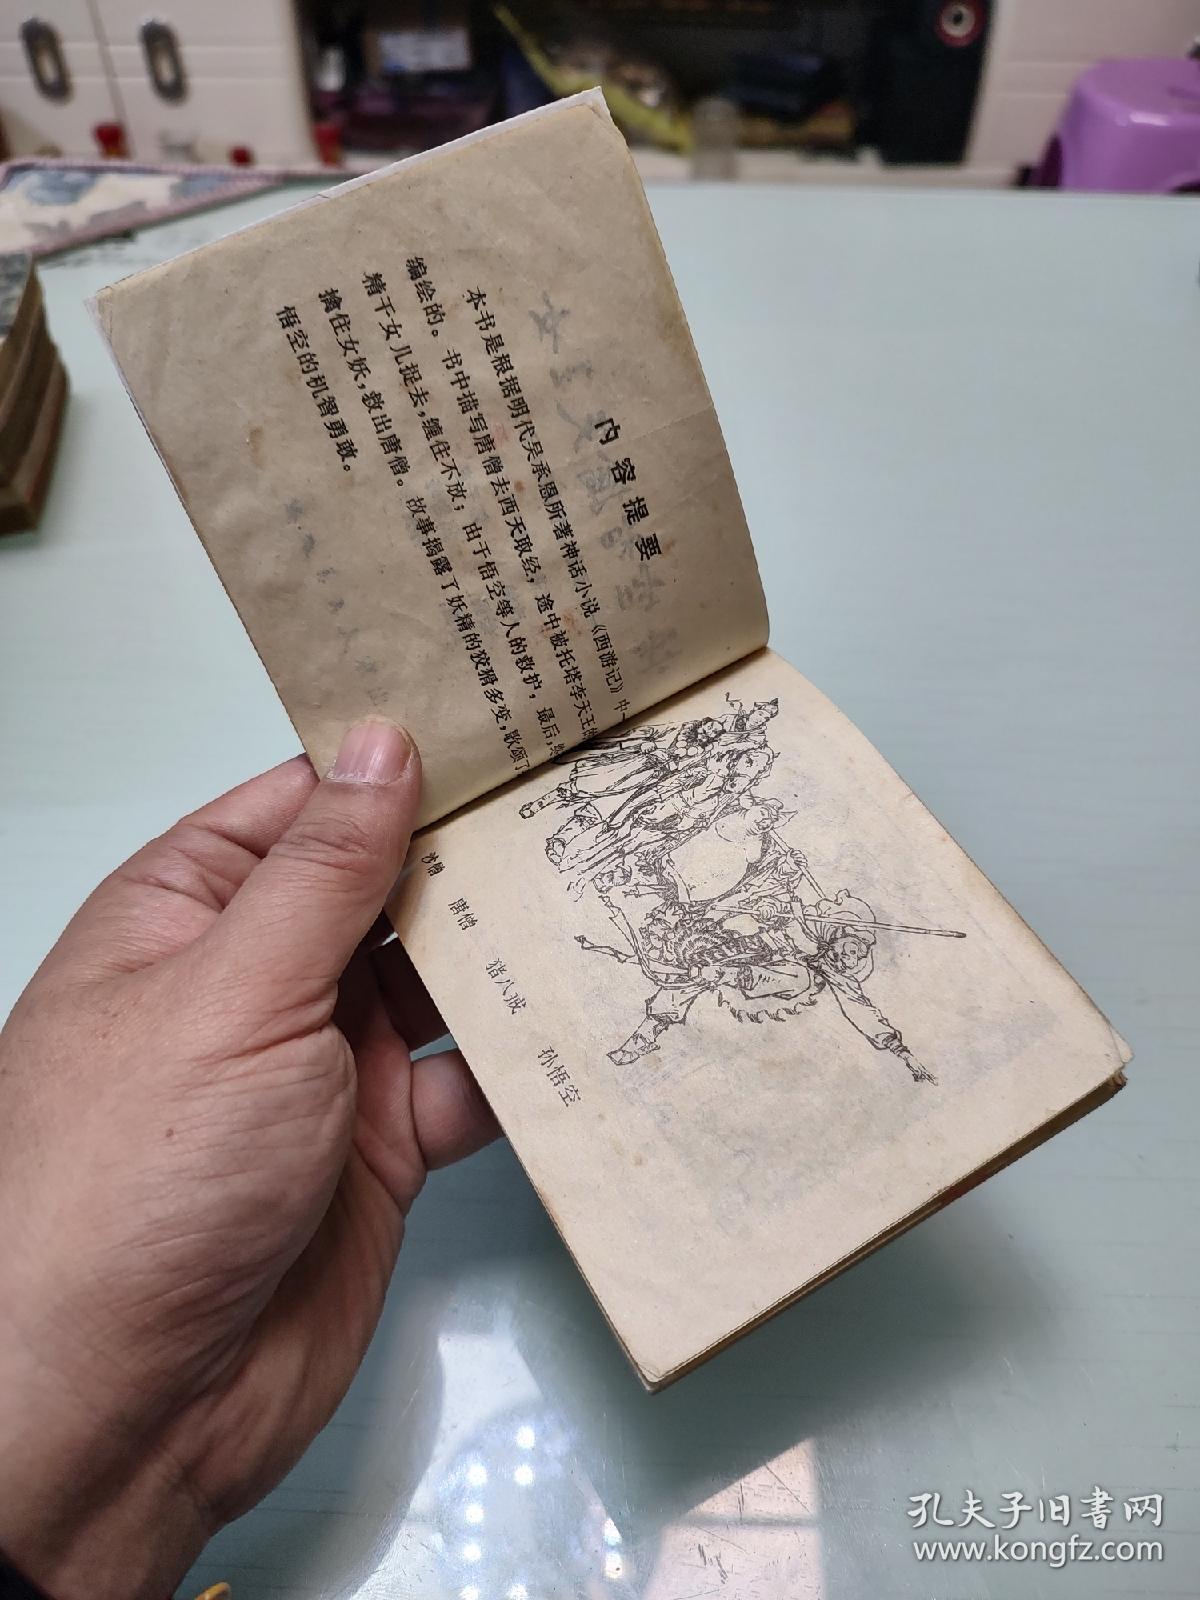 内容提要
本书是根据明代吴承恩所著神话小说《西游记》中一
编绘的。书中描写唐僧去西天取经，途中被托塔李天王的
精干女儿捉去，缠住不放；由于悟空等人的救护，最后，终
擒住女妖，救出唐僧。故事揭露了妖精的狡猾多变，歌颂了
悟空的机智勇敢。
沙僧 唐僧 猪八戒 孙悟空
孔夫子旧书网
www.kongfz.com